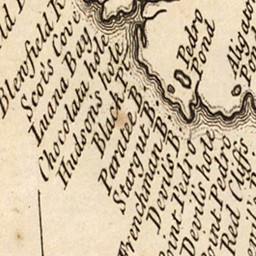 Blenfield
Scots Cove
Iuana Bay
Chocolata hole
Hudson's hole
Black P.
Paratee B.
Stargut B.
Frenchman B.
Devils B.
Pedro
Devils hole
Pedro
Red Cliffs
Pedro
Pond